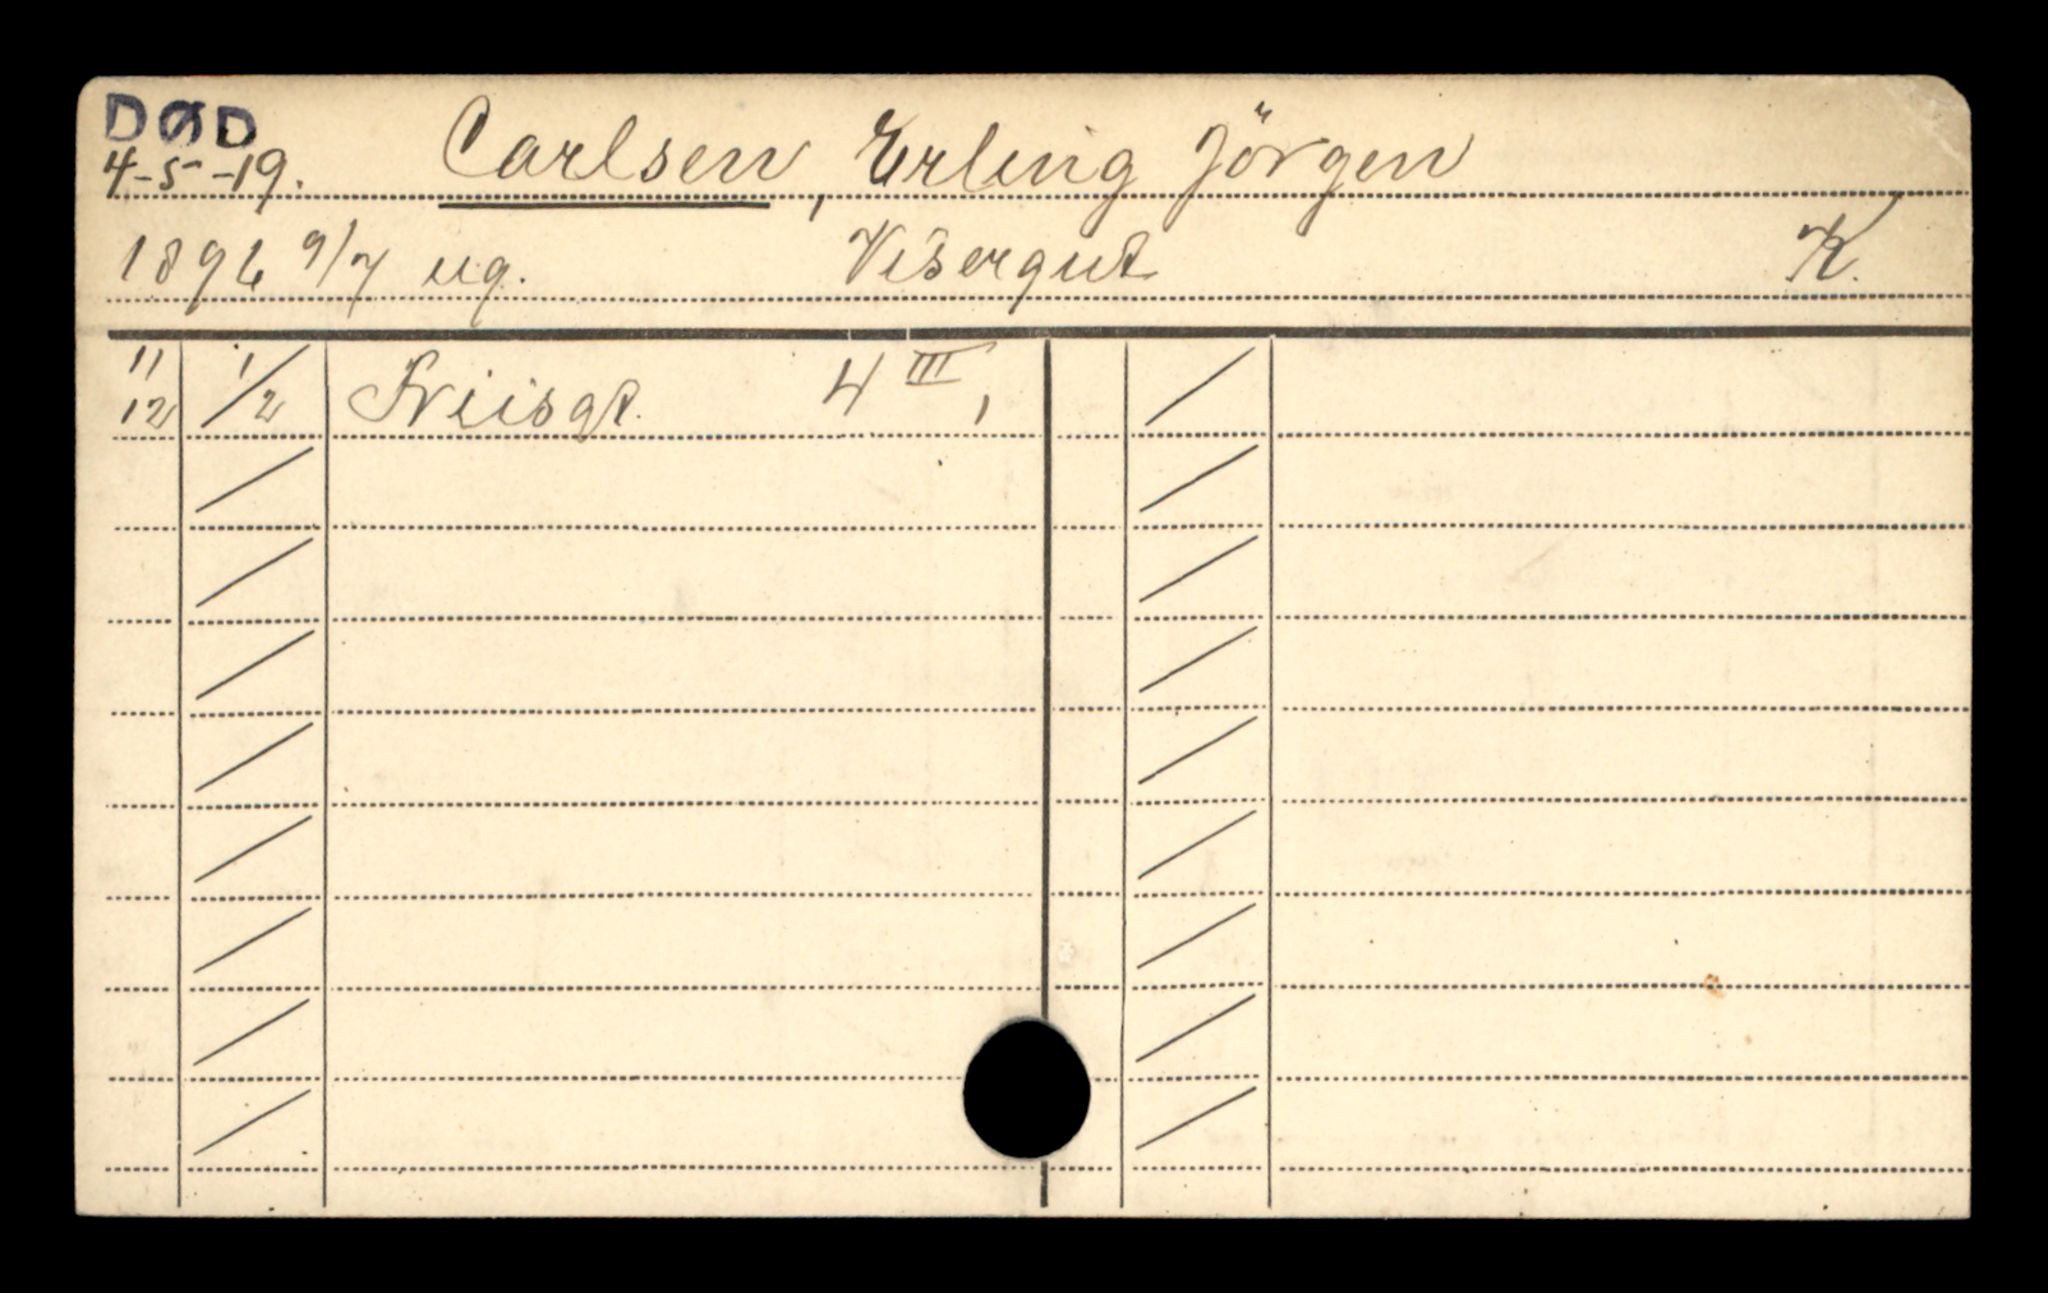 DØD
4-5-19. Carlsen, Erling Jörgen
1896 9/7 ug. Visergut K.
11
12 1/2 Friisgt. 4 III,